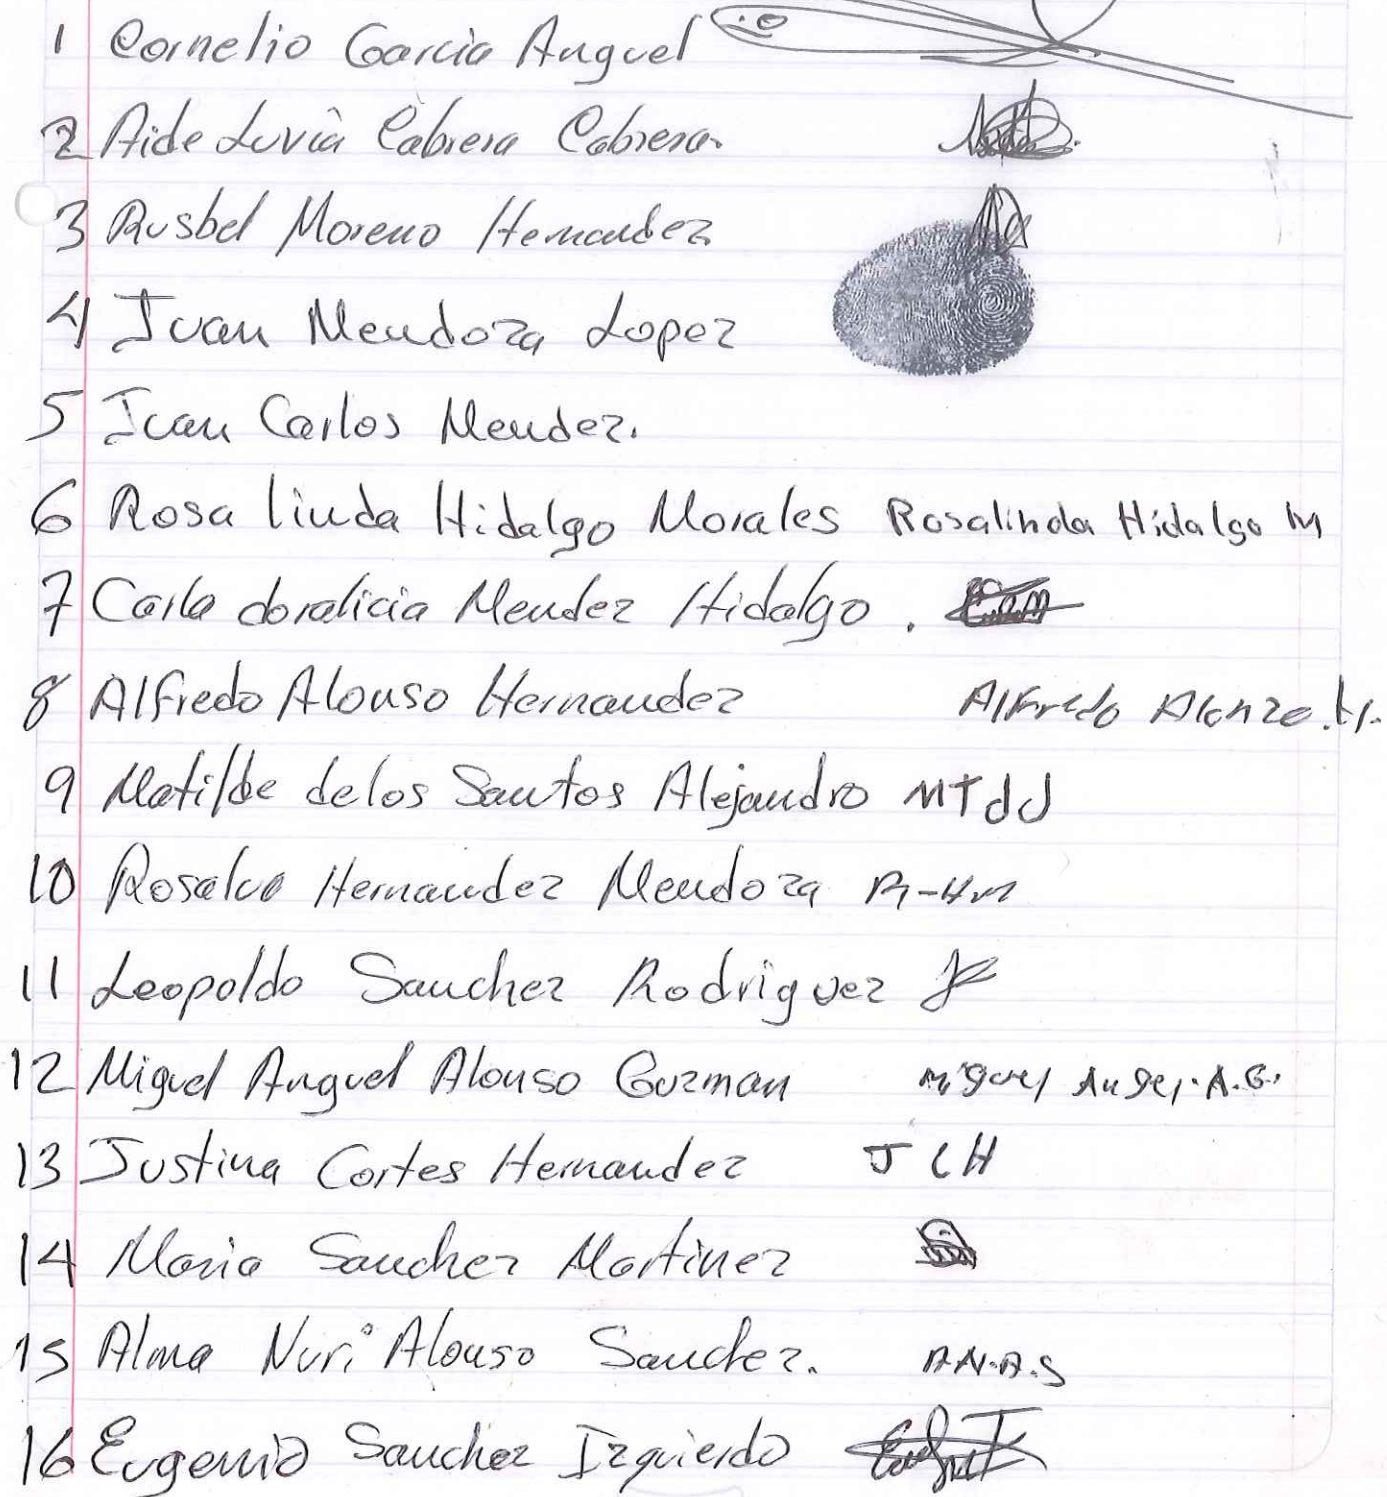 1 Cornelio Garcia Anguel
2 Aide Luvia Cabrera Cabrera
3 Rusbel Moreno Hernandez
4 Juan Mendoza Lopez
5 Juan Carlos Mendez.
6 Rosa linda Hidalgo Morales Rosalinda Hidalgo M
7 Carla doralicia Mendez Hidalgo.
8 Alfredo Alonso Hernandez Alfredo Alonzo. H.
9 Matilde delos Santos Alejandro MTdJ
10 Rosalva Hernandez Mendoza R-HM
11 Leopoldo Sanchez Rodriguez
12 Miguel Anguel Alonso Guzman Miguel Angel. A.G.
13 Justina Cortes Hernandez JCH
14 Maria Sanchez Martinez
15 Alma Nuri Alonso Sanchez. A.N.A.S
16 Eugenio Sanchez Izquierdo